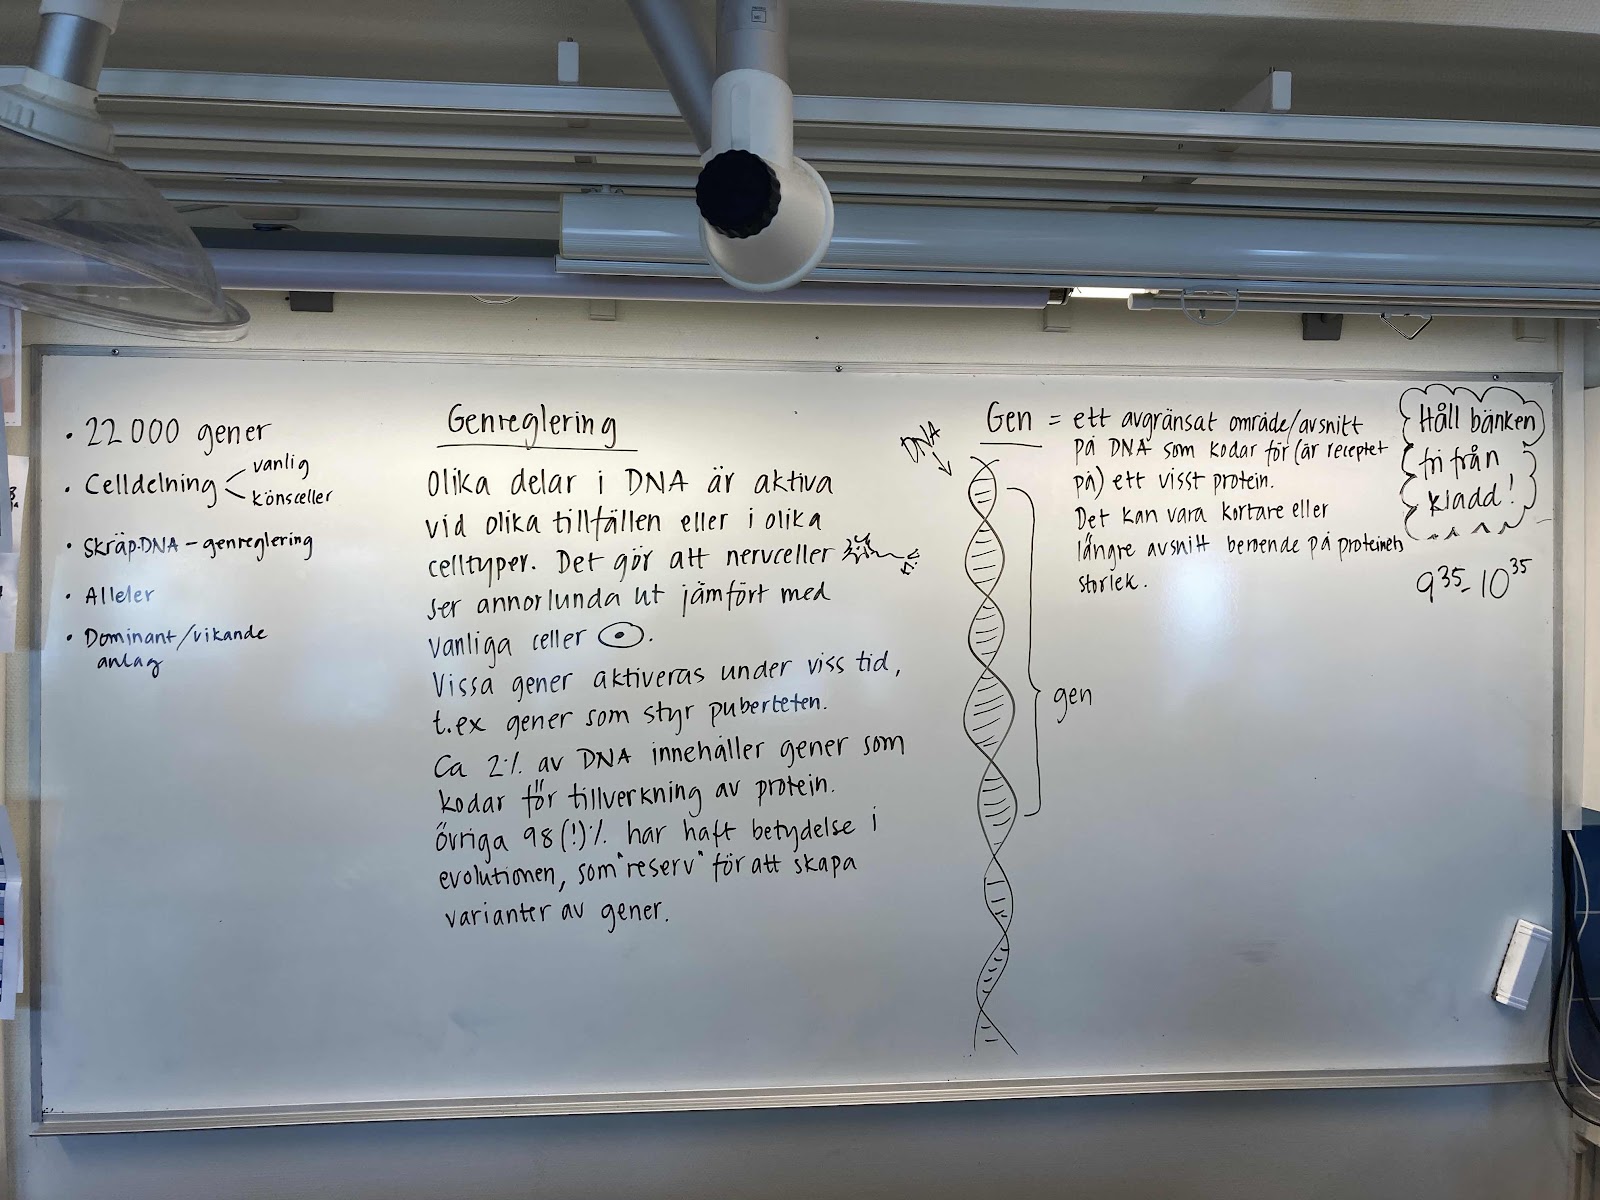 • 22 000 gener
• Celldelning
vanlig
könsceller
• Skräp-DNA – genreglering
• Alleler
• Dominant/vikande
anlag
Genreglering
Olika delar i DNA är aktiva
vid olika tillfällen eller i olika
celltyper. Det gör att nervceller
ser annorlunda ut jämfört med
vanliga celler .
Vissa gener aktiveras under viss tid,
t.ex gener som styr puberteten.
Ca 2% av DNA innehåller gener som
kodar för tillverkning av protein.
övriga 98(!)% har haft betydelse i
evolutionen, som "reserv" för att skapa
varianter av gener.
DNA
gen
Gen = ett avgränsat område/avsnitt
på DNA som kodar för (är receptet
på) ett visst protein.
Det kan vara kortare eller
längre avsnitt beroende på proteinets
storlek.
Håll bänken
fri från
kladd!
9³⁵- 10³⁵